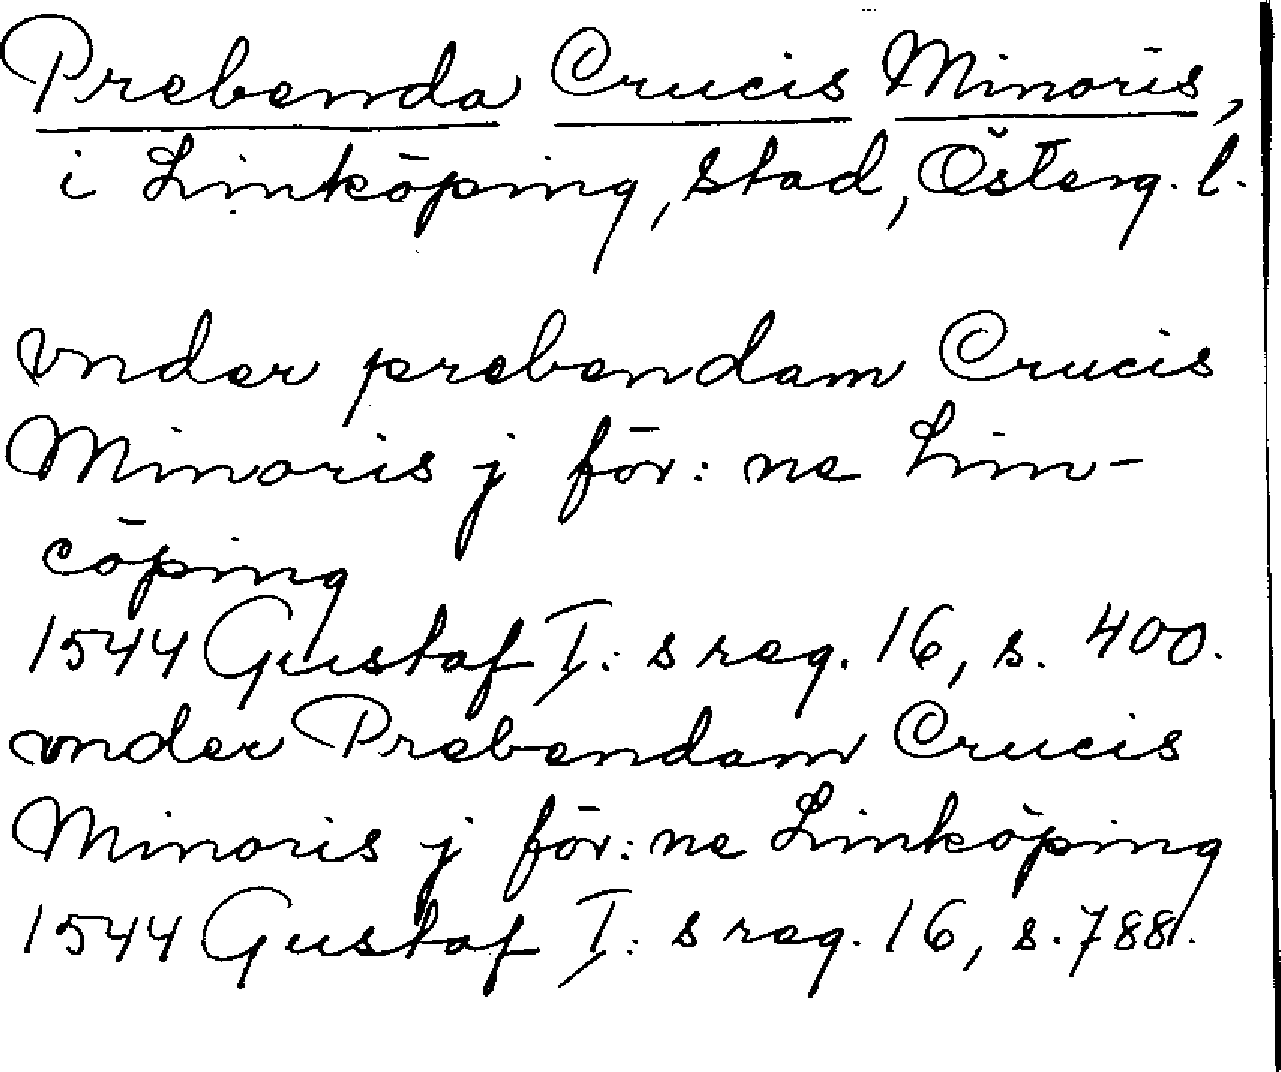 Prebenda Crucis Minoris,
i Linköping, stad, Österg. l.
vnder prebendam Crucis
Minoris j för: ne Lin-
cöping
1544 Gustaf I: s reg. 16, s. 400.
vnder Prebendam Crucis
Minoris j för: ne Linköping
1544 Gustaf I: s reg. 16, s. 788.